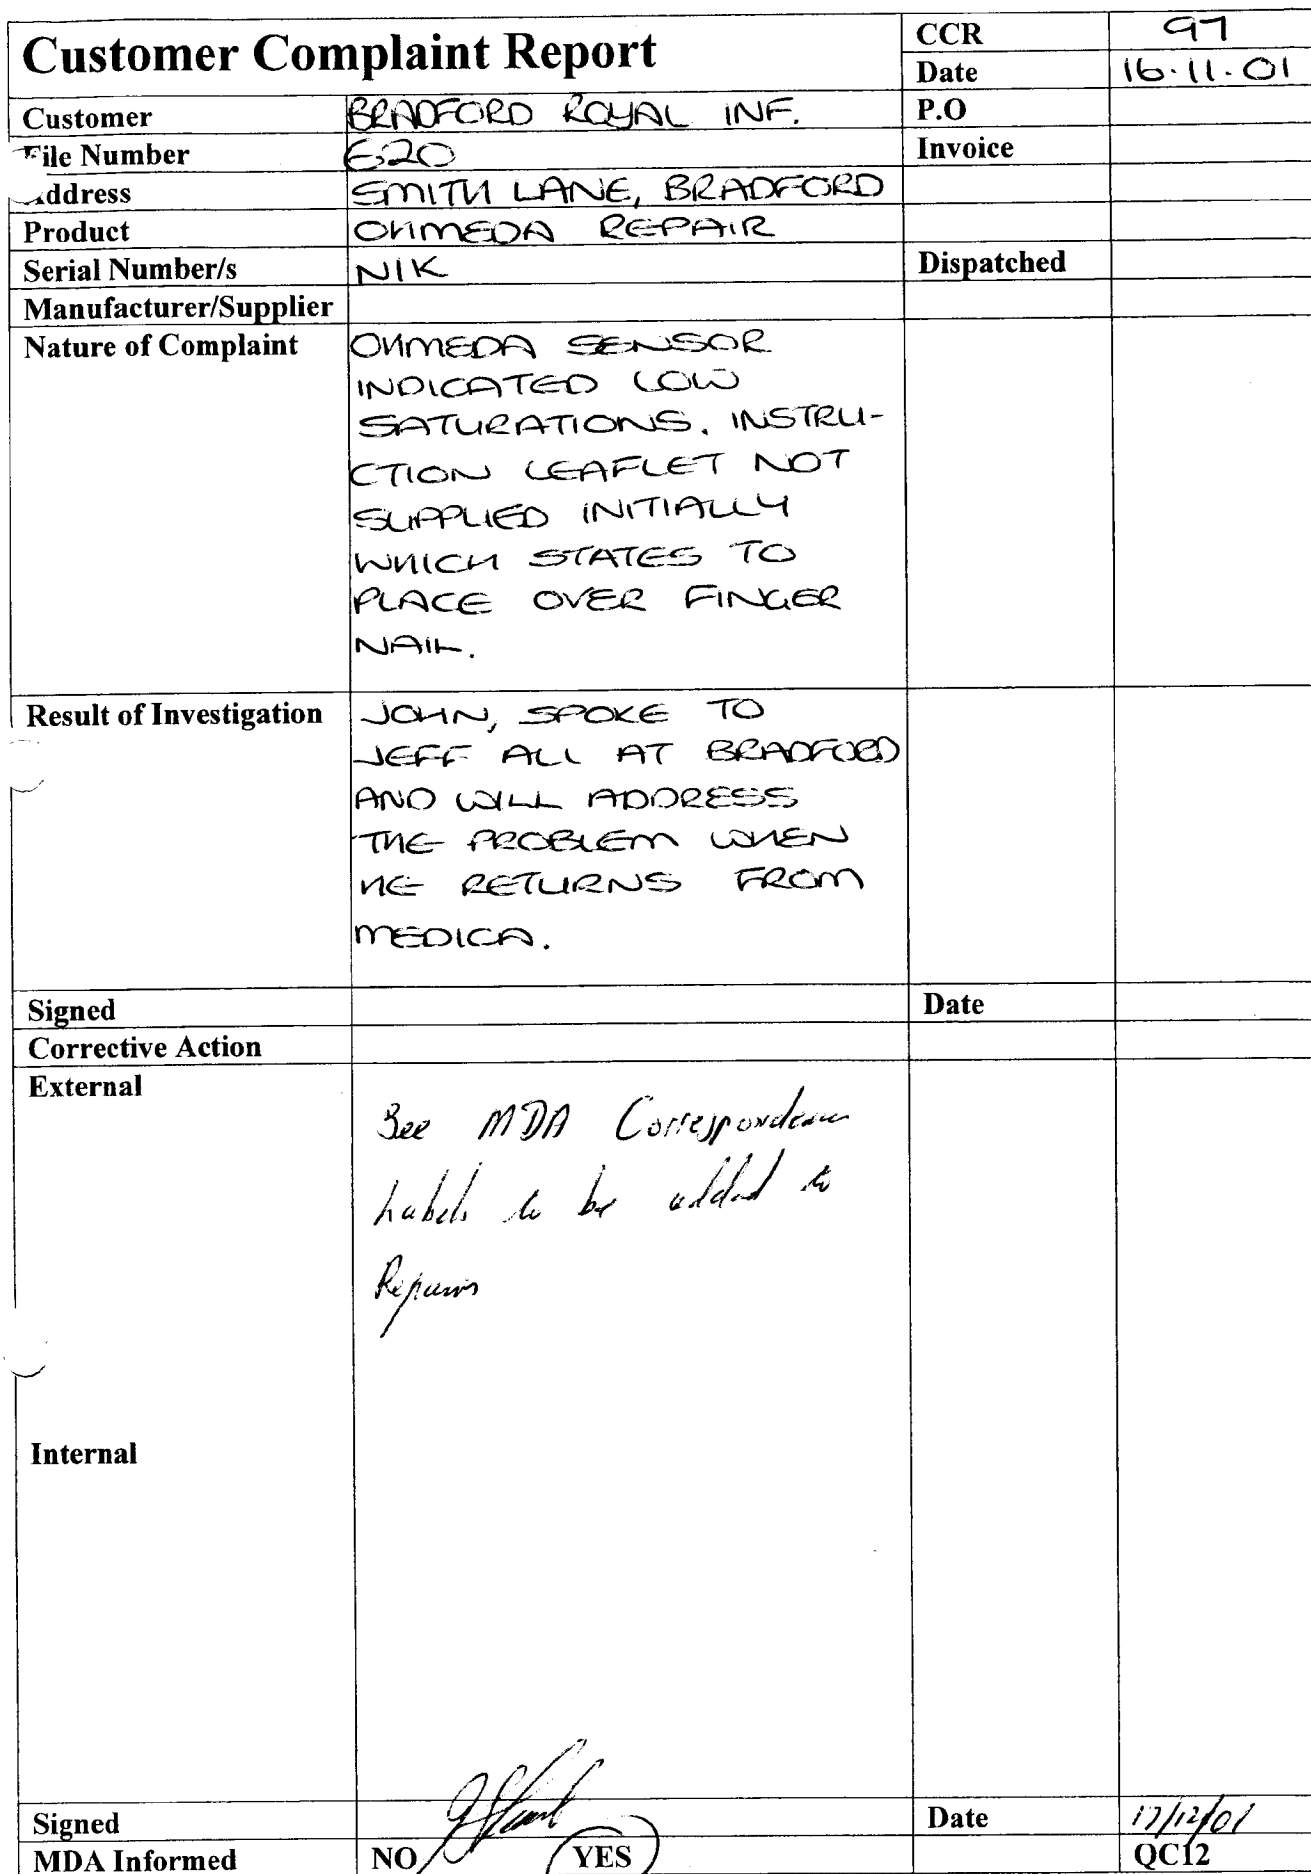 Customer Complaint Report
CCR 97
Date 16.11.01
Customer BRADFORD ROYAL INF. P.O
File Number E20 Invoice
Address SMITH LANE, BRADFORD
Product OHMEDA REPAIR
Serial Number/s N/K Dispatched
Manufacturer/Supplier
Nature of Complaint OHMEDA SENSOR
INDICATED LOW
SATURATIONS. INSTRU-
CTION LEAFLET NOT
SUPPLIED INITIALLY
WHICH STATES TO
PLACE OVER FINGER
NAIL.
Result of Investigation JOHN, SPOKE TO
JEFF ALL AT BRADFORD
AND WILL ADDRESS
THE PROBLEM WHEN
HE RETURNS FROM
MEDICA.
Signed Date
Corrective Action
External
See MDA Correspondence
Labels to be added to
Repairs
Internal
Signed Date 17/12/01
MDA Informed NO YES QC12